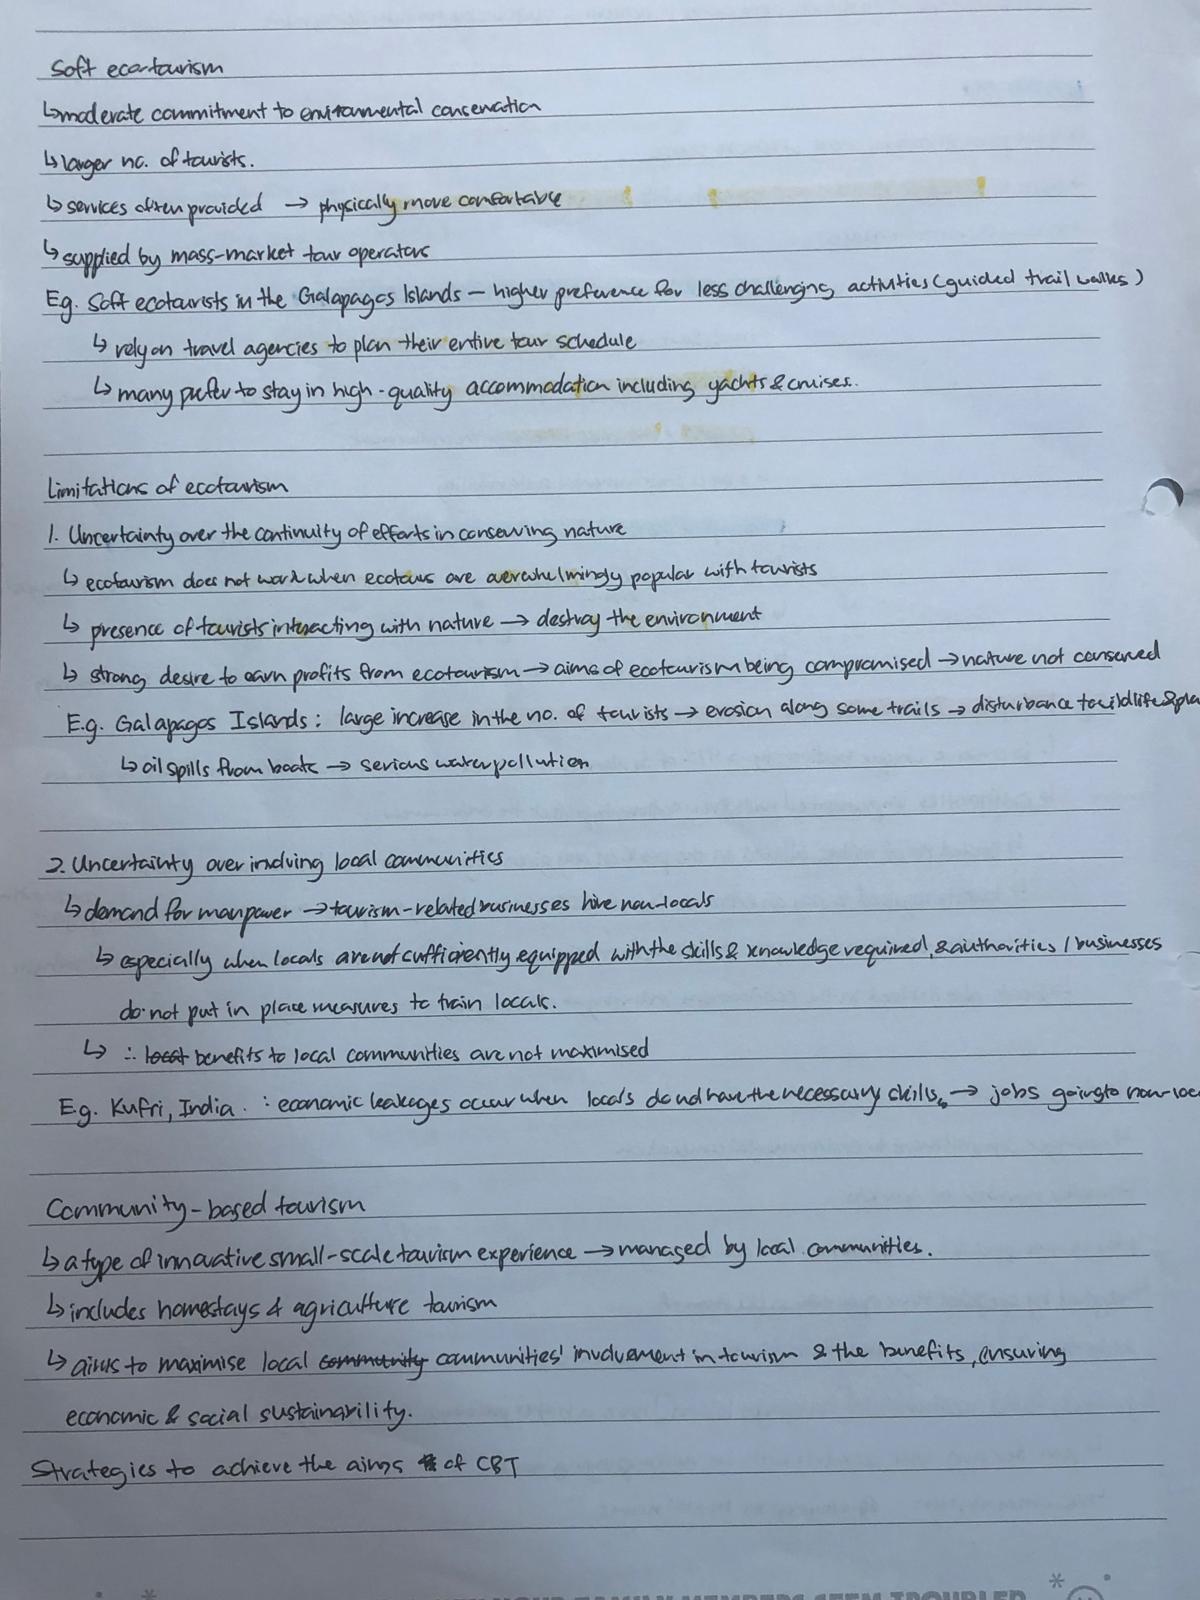 Soft ecotourism
↳ moderate commitment to environmental conservation
↳ larger no. of tourists.
↳ services often provided → physically more comfortable
↳ supplied by mass-market tour operators
Eg. Soft ecotourists in the Galapagos Islands - higher preference for less challenging activities (guided trail walks)
↳ rely on travel agencies to plan their entire tour schedule
↳ many prefer to stay in high-quality accommodation including yachts & cruises.
Limitations of ecotourism
1. Uncertainty over the continuity of efforts in conserving nature
↳ ecotourism does not work when ecotours are overwhelmingly popular with tourists
↳ presence of tourists interacting with nature → destroy the environment
↳ strong desire to earn profits from ecotourism → aims of ecotourism being compromised → nature not conserved
E.g. Galapagos Islands: large increase in the no. of tourists → erosion along some trails → disturbance to wildlife & pla
↳ oil spills from boats → serious water pollution
2. Uncertainty over involving local communities
↳ demand for manpower → tourism-related businesses hire non-locals
↳ especially when locals are not sufficiently equipped with the skills & knowledge required, & authorities / businesses
do not put in place measures to train locals.
↳ ∴ local benefits to local communities are not maximised
E.g. Kufri, India. : economic leakages occur when locals do not have the necessary skills, → jobs going to non-loc
Community-based tourism
↳ a type of innovative small-scale tourism experience → managed by local communities.
↳ includes homestays & agriculture tourism
↳ aims to maximise local community communities' involvement in tourism & the benefits, ensuring
economic & social sustainability.
Strategies to achieve the aims of CBT